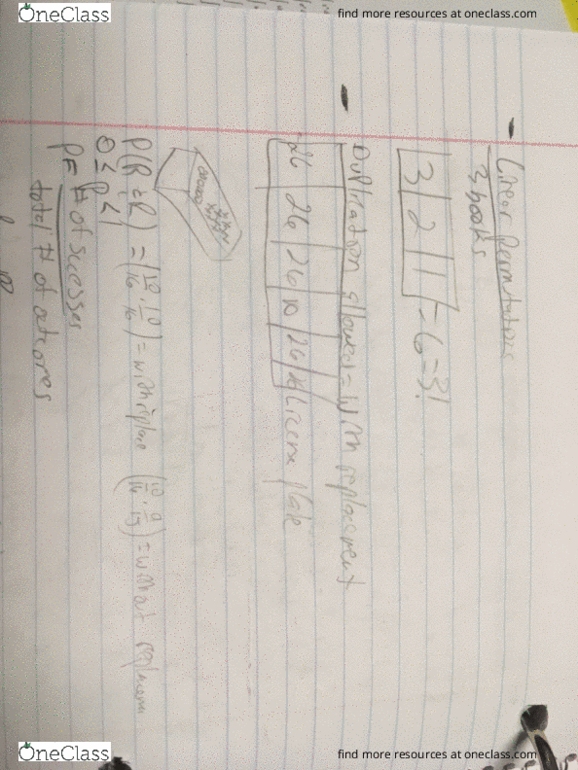 OneClass
find more resources at oneclass.com
- Linear permutations
3 books
3 | 2 | 1 = 6 = 3!
- Duplication allowed = with replacement
26 | 26 | 26 | 10 | 26 | License plate
P(R & R) = (10/16 · 10/16) = with replace (10/16 · 9/15) = without
0 ≤ P ≤ 1
P = # of sucesses
total # of outcomes
OneClass
find more resources at oneclass.com